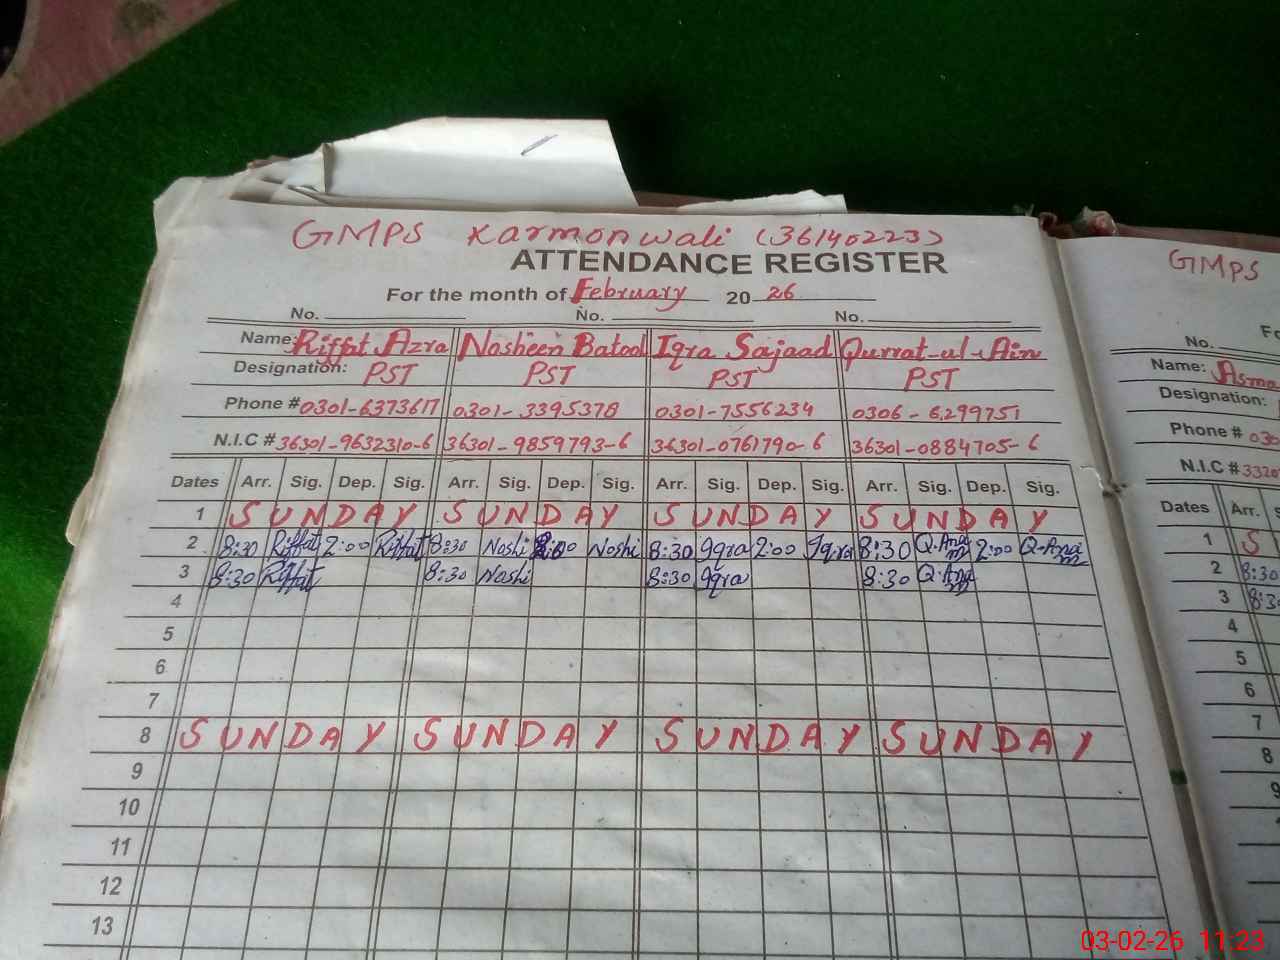 GMPS Karmonwali (36140223)
ATTENDANCE REGISTER
For the month of February 2026
No. No. No.
Name: Riffat Azra Nosheen Batool Iqra Sajaad Qurrat-ul-Ain
Designation: PST PST PST PST
Phone # 0301-6373617 0301-3395378 0301-7556234 0306-6299751
N.I.C # 36301-9632310-6 36301-9859793-6 36301-0761790-6 36301-0884705-6
Dates Arr. Sig. Dep. Sig. Arr. Sig. Dep. Sig. Arr. Sig. Dep. Sig. Arr. Sig. Dep. Sig.
1 SUNDAY SUNDAY SUNDAY SUNDAY
2 8:30 Riffat 2:00 Riffat 8:30 Noshi 2:00 Noshi 8:30 Iqra 2:00 Iqra 8:30 Q.Ann 2:00 Q.Ann
3 8:30 Riffat 8:30 Noshi 8:30 Iqra 8:30 Q.Ann
4
5
6
7
8 SUNDAY SUNDAY SUNDAY SUNDAY
9
10
11
12
13
GMPS
No.
Name: Asma
Designation:
Phone # 030
N.I.C # 3320
Dates Arr.
1 S
2 8:30
3 8:3
4
5
6
7
8
9
03-02-26 11:23